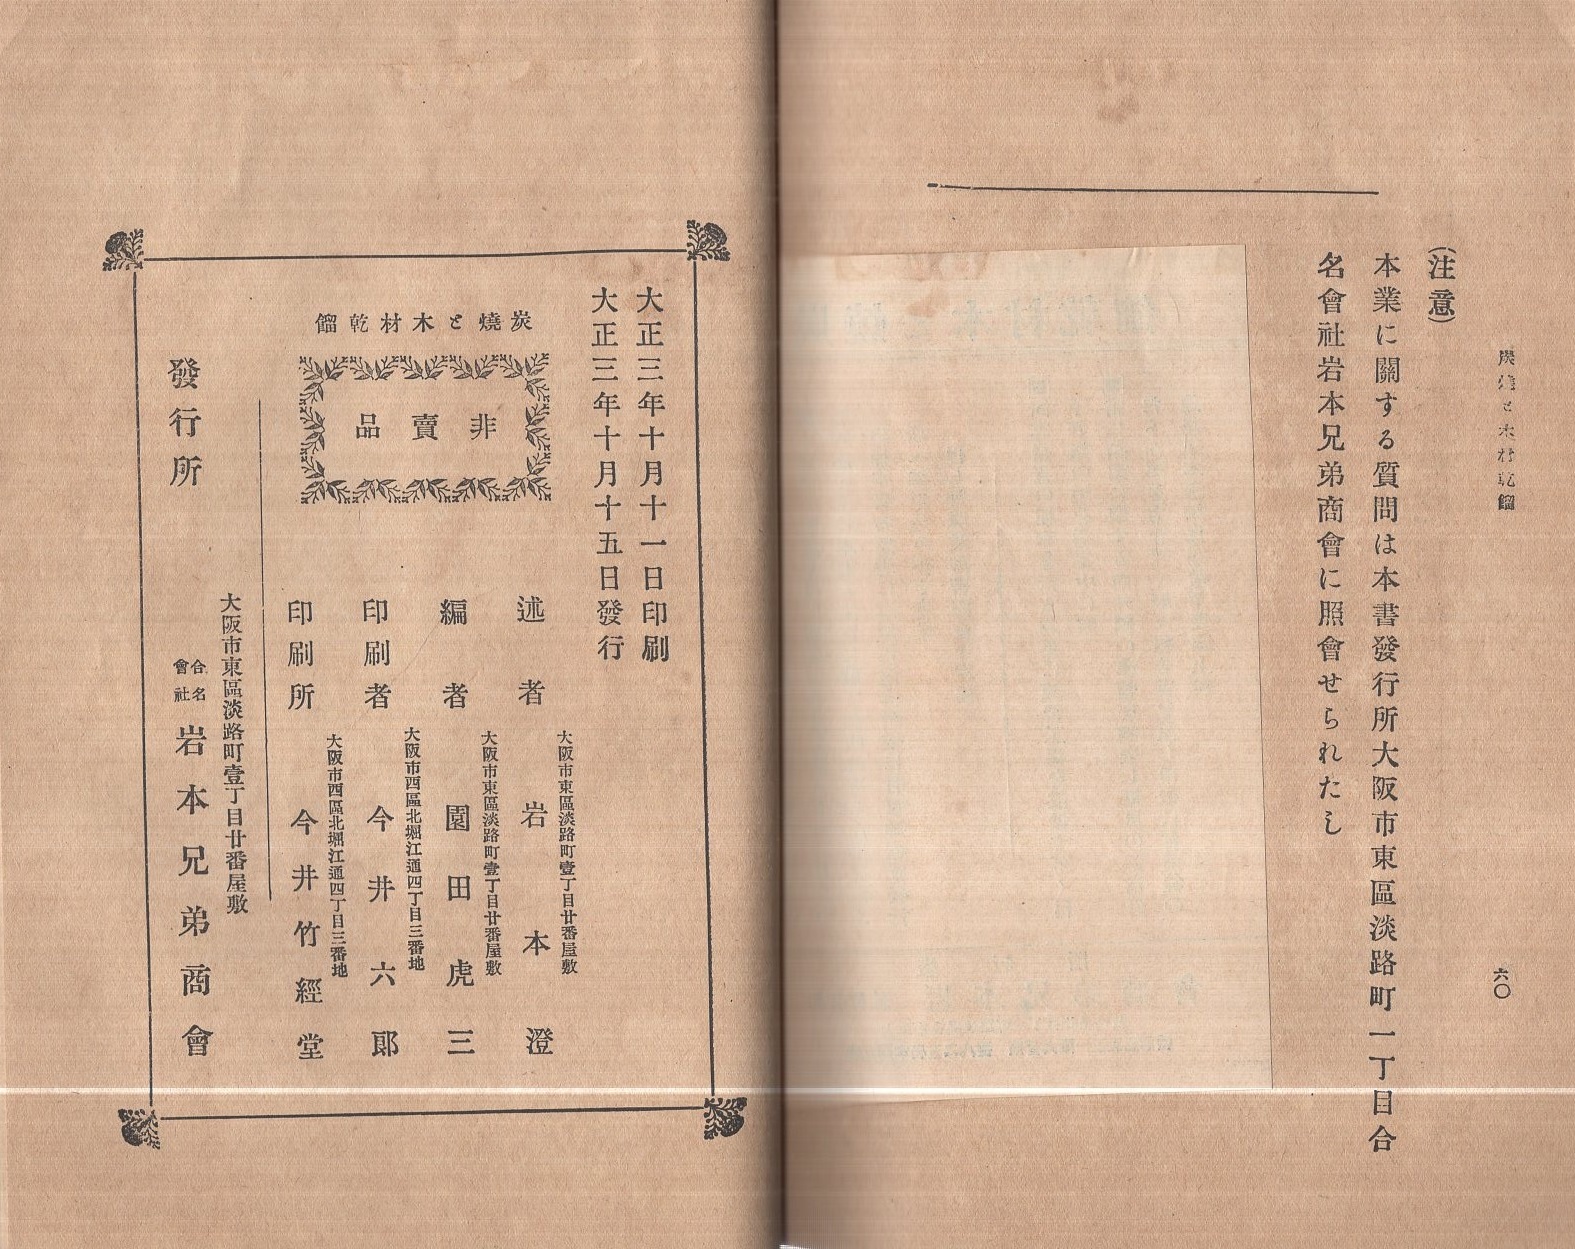 炭燒と木材乾餾
六〇
(注意)
本業に關する質問は本書發行所大阪市東區淡路町一丁目合
名會社岩本兄弟商會に照會せられたし
大正三年十月十一日印刷
大正三年十月十五日發行
炭燒と木材乾餾
非賣品
述者
大阪市東區淡路町壹丁目廿番屋敷
岩本澄
編者
大阪市東區淡路町壹丁目廿番屋敷
園田虎三
印刷者
大阪市西區北堀江通四丁目三番地
今井六郎
印刷所
大阪市西區北堀江通四丁目三番地
今井竹經堂
發行所
大阪市東區淡路町壹丁目廿番屋敷
合名會社
岩本兄弟商會